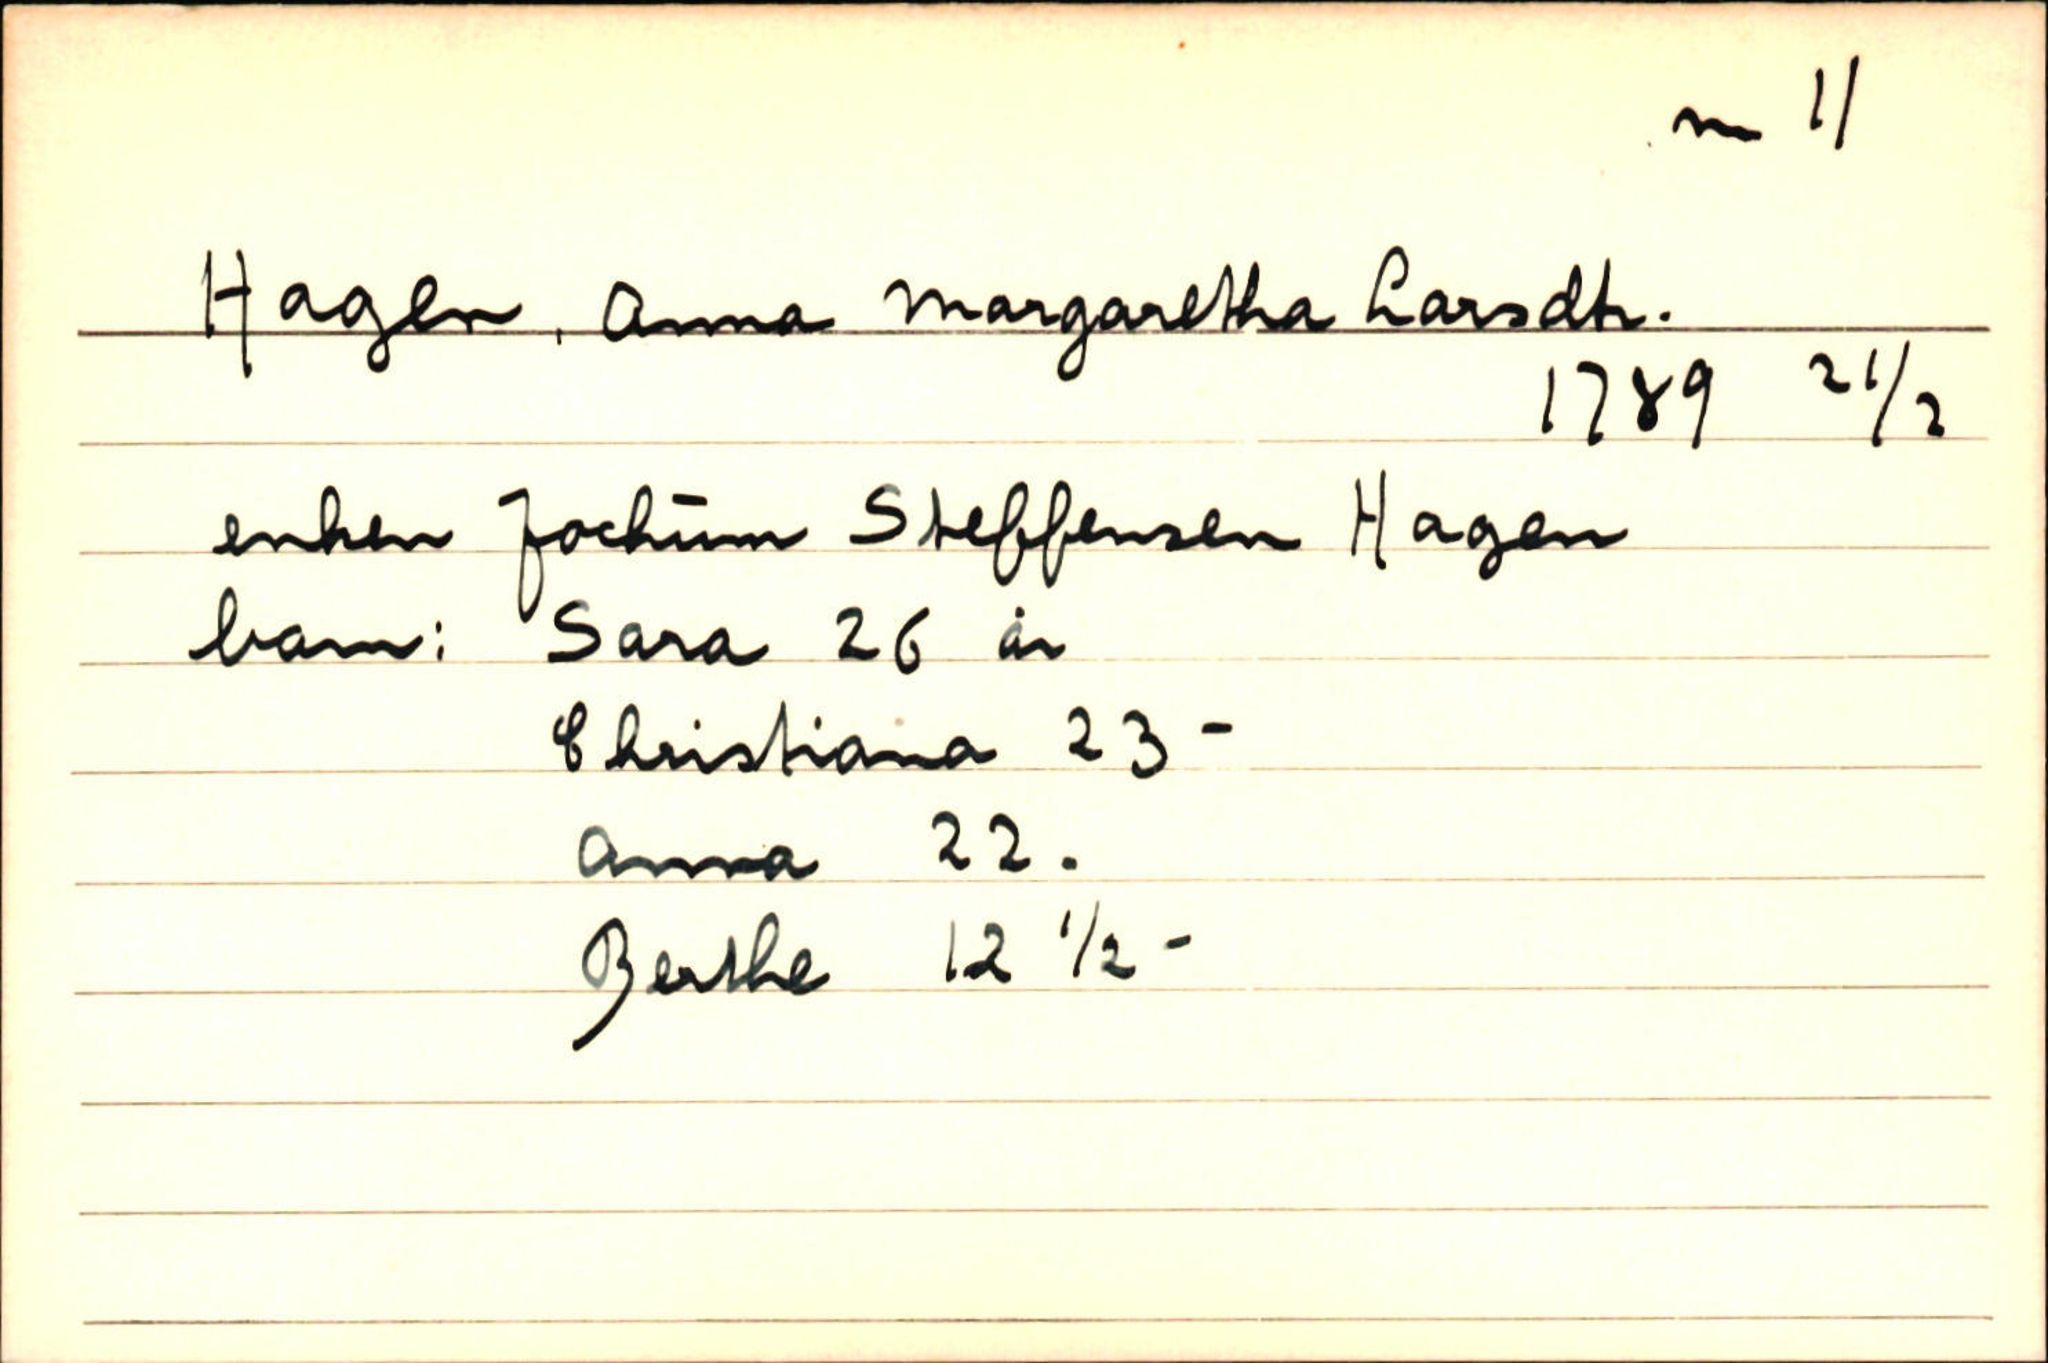 m 11
Hagen, Anna Margaretha Larsdtr.
1789 21/2
enken Jochum Steffensen Hagen
barn: Sara 26 år
Christiana 23 -
Anna 22 .
Berthe 12 1/2 -